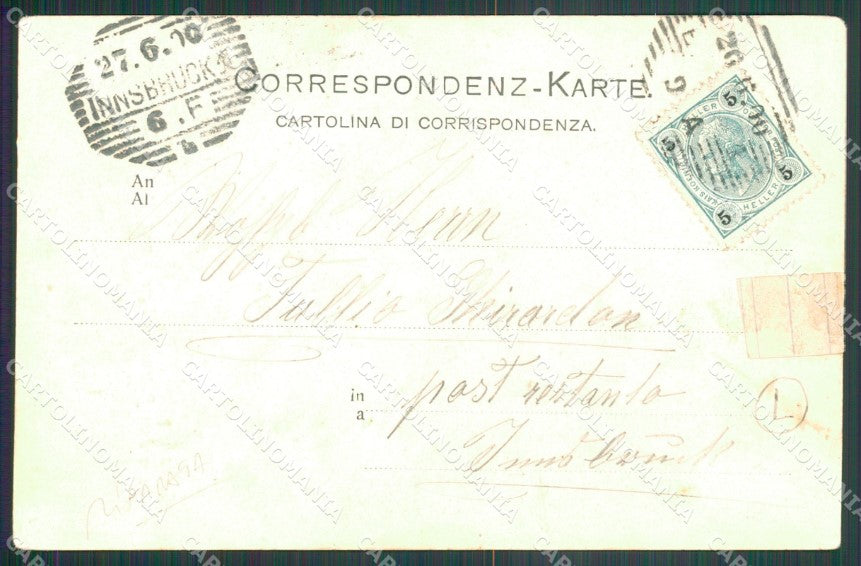 27.6.00
INNSBRUCK 1
6.F
CORRESPONDENZ-KARTE.
CARTOLINA DI CORRISPONDENZA.
26 6 00
9 A
5
5
5
5
HELLER
HELLER
An
Al
Herrn
Tullio Ghirardon
in
a
post restante
Innsbruck
L
CARTOLINOMANIA